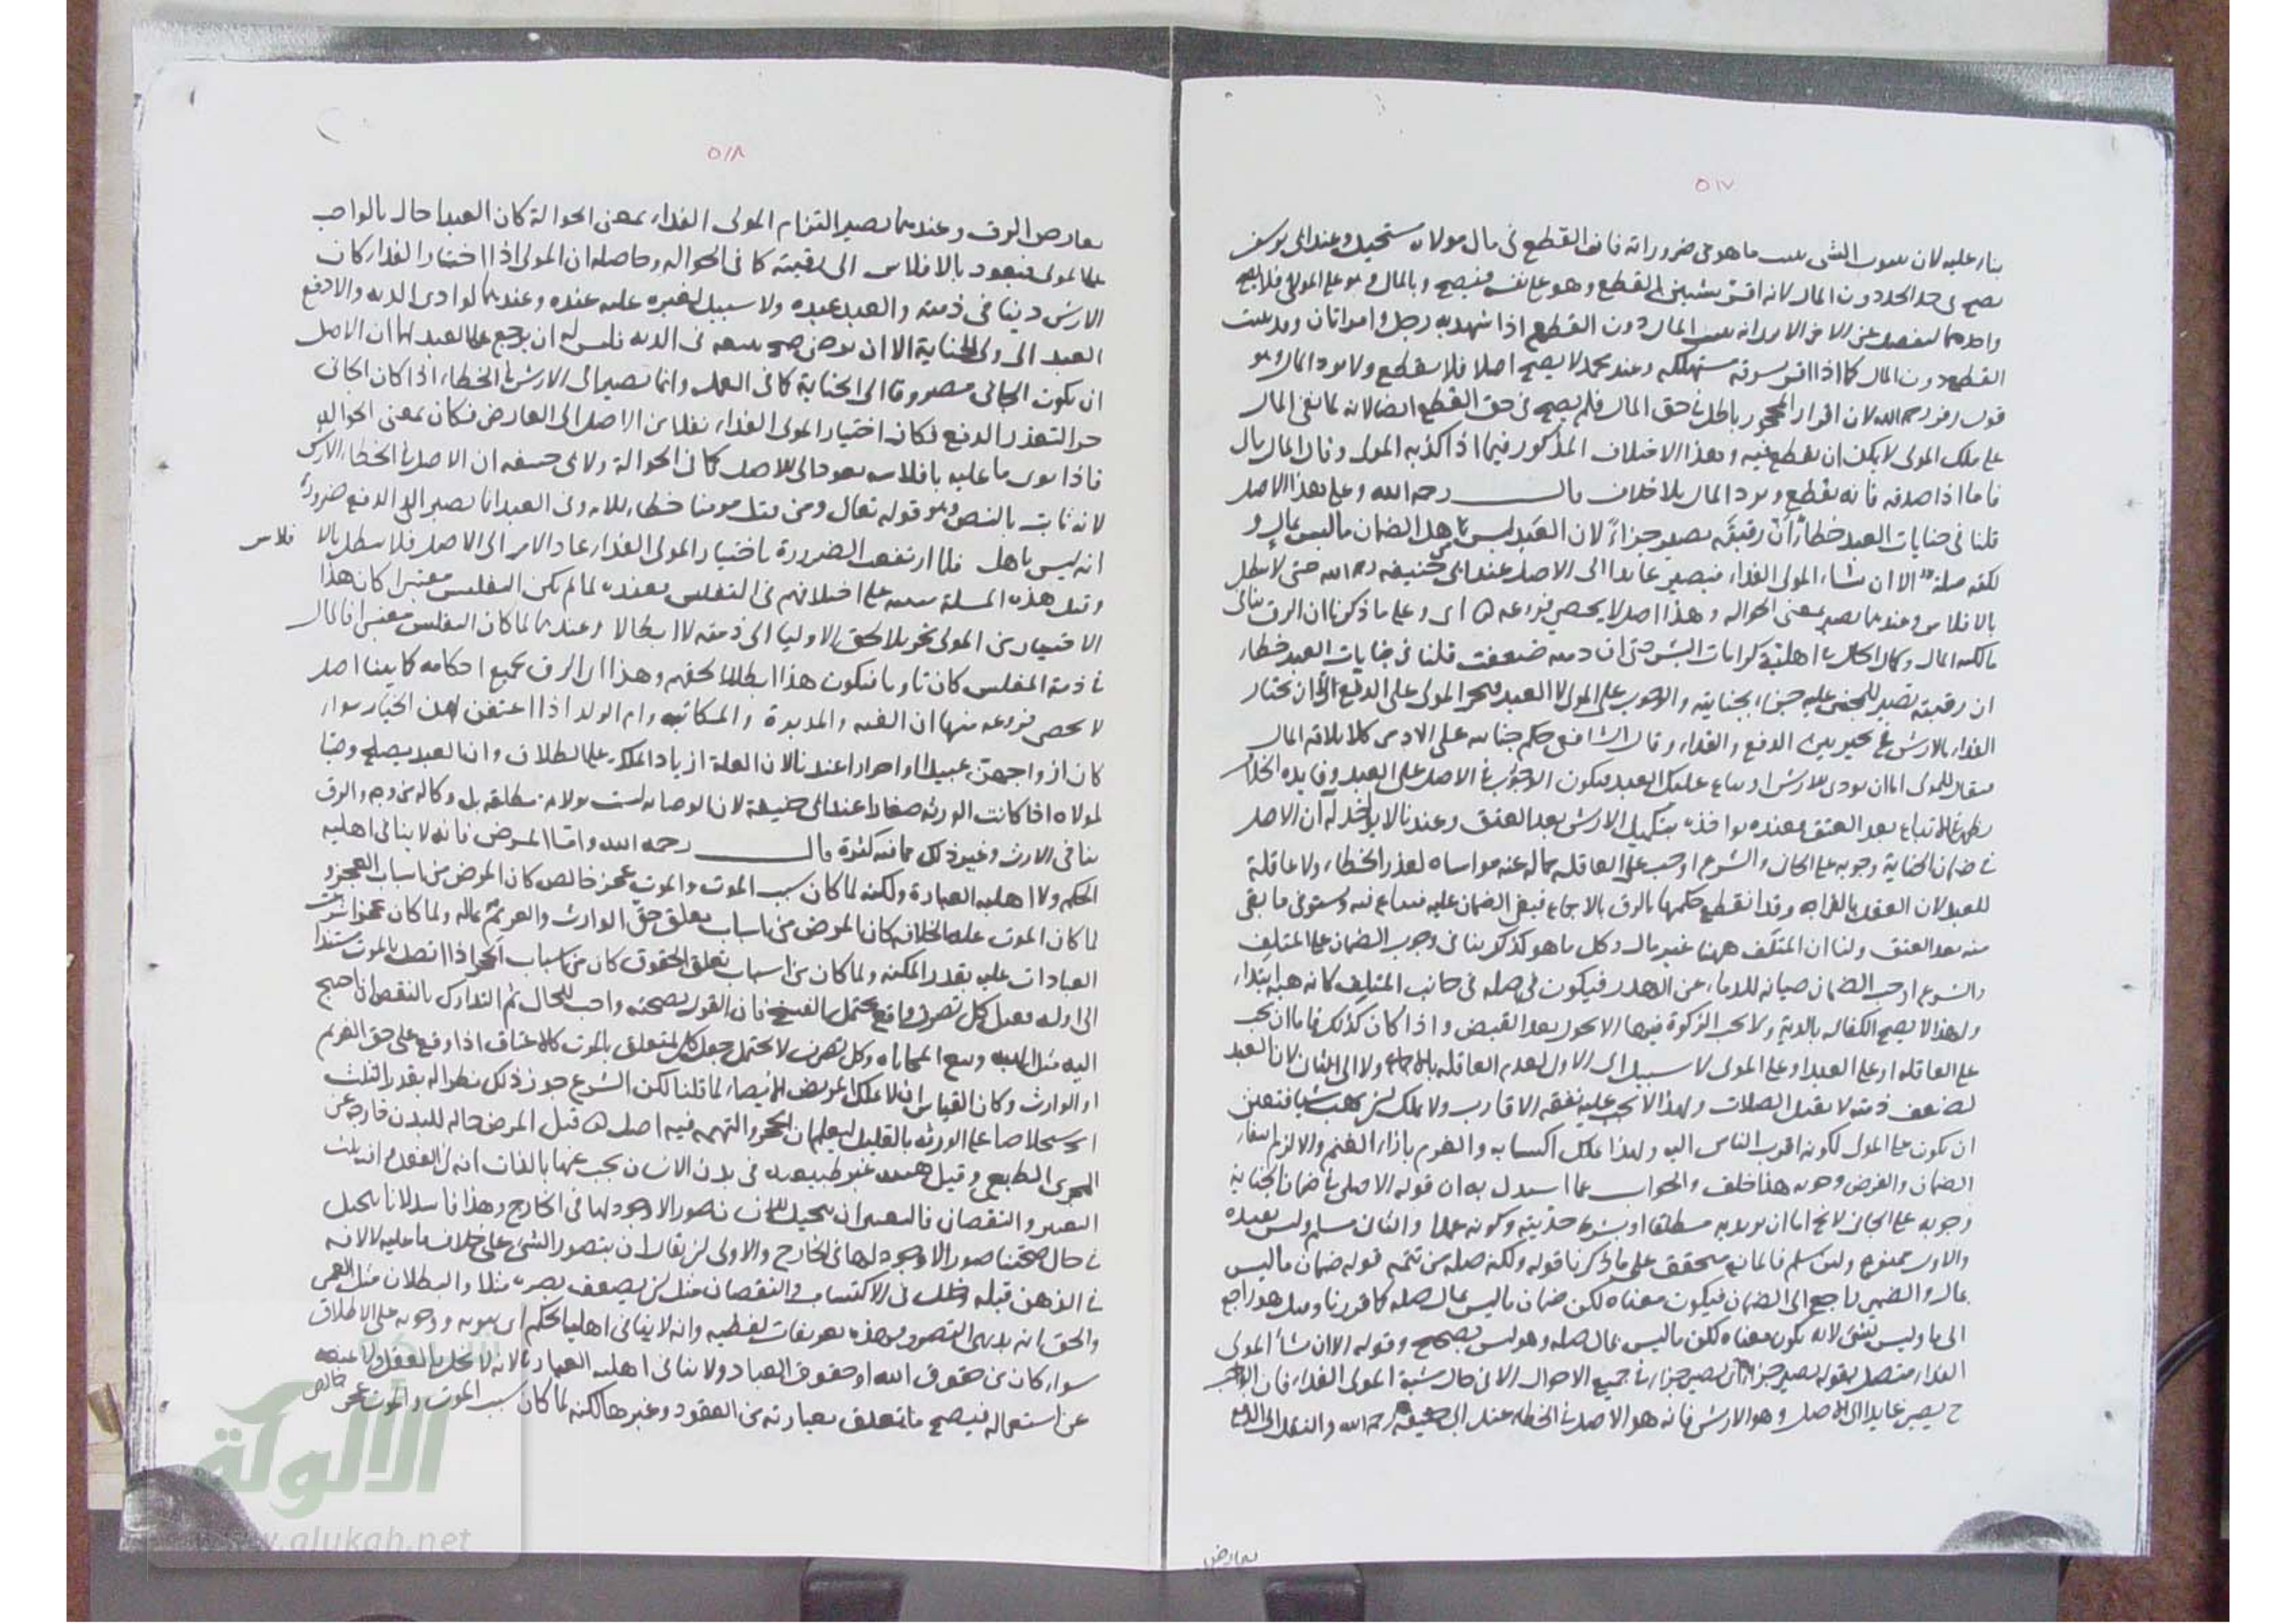 ٥١٧
بناء عليه لان الشئ ما هو من ضروراته فان القطع فى مال مولاه مستحيل وعند ابى يوسف
يصح فى حد الحد دون المال لانه اقر بشيئين القطع وهو على نفسه فيصح وبالمال وهو على المولى فلا يصح
واحدهما ينفصل عن الاخر الا يرى انه يثبت المال دون القطع اذا شهد به رجل وامراتان وقد يثبت
القطع دون المال كما اذا اقر بسرقة مستهلكه وعند محمد لا يصح اصلا فلا يقطع ولا يرد المال وهو
قول زفر رحمه الله لان اقرار المحجور باطل فى حق المال فلم يصح فى حق القطع ايضا لانه لما بقى المال
على ملك المولى لا يمكن ان يقطع فيه وهذا الاختلاف المذكور فيما اذا كذبه المولى وقال المال مالى
فاما اذا صدقه فانه يقطع ويرد المال بلا خلاف قال رحمه الله وعلى هذا الاصل
قلنا فى جنايات العبد خطأ ان رقبته يصير جزاء لان العبد ليس باهل لضمان ما ليس بمال و
لكنه صلة الا ان يشاء المولى الفداء فيصير عايدا الى الاصل عند ابى حنيفه رحمه الله حتى لا يبطل
بالافلاس وعندهما يصير بمعنى الحواله وهذا اصل لا يحصى فروعه اى وعلى ما ذكرنا ان الرق ينافى
مالكيه المال وكمال الحال فى اهلية كرامات البشر حتى ان ذمته ضعفت قلنا فى جنايات العبد خطاء
ان رقبته تصير للمجنى عليه جزاء لجنايته والوجوب على المولى لا العبد المولى على الدفع الا ان يختار
الفداء بالارش بين الدفع والفداء وقال الشافعى حكم جنايته على الادمى كاتلافه المال
فيقال للمولى اما ان يودى الارش او يباع عليك العبد فيكون الوجوب فى الاصل على العبد وفايده الخلاف
يظهر فى الاتباع بعد العتق فعنده يواخذ بتكميل الارش بعد العتق وعندنا لا يواخذ له ان الاصل
فى ضمان الجناية وجوبه على الجانى والشرع اوجب على العاقله تحمله عنه مواساه لعذر الخطاء ولا عاقلة
للعبد لان العقل بالقرابه وقد انقطع حكمها بالرق بالاجماع فبقى الضمان عليه فيباع فيه ويستوفى ما بقى
منه بعد العتق ولنا ان المتلف ههنا غير مال وكل ما هو كذلك ينافى وجوب الضمان على المتلف
والشرع اوجب الضمان صيانه للدماء عن الهدر فيكون صله فى جانب المتلف كانه هبه ابتداء
ولهذا لا يصح الكفاله بالدية ولا يجب الزكوة فيها الا بحول بعد القبض واذا كان كذلك فاما ان يجب
على العاقله او على العبد او على المولى لا سبيل الى الاول لعدم العاقله بالاجماع ولا الى الثانى لان العبد
لضعف ذمته لا يقبل الصلات ولهذا لا يجب عليه نفقه الاقارب ولا يملك ان يهب شيا فتعين
ان يكون على المولى لكونه اقرب الناس اليه ولهذا يملك اكتسابه والغرم بازاء الغنم والا لزم انتفاء
الضمان والفرض وجوبه هذا خلف والجواب عما استدل به ان قوله الاصل فى ضمان الجناية
وجوبه على الجانى لا يخ اما ان يريد به مطلقا او بشرط حريته وكونه عمدا والثانى مسلم وليس يفيده
والاول ممنوع ولئن سلم فالمانع متحقق على ما ذكرنا قوله ولكنه صله من تتمه قوله ضمان ما ليس
بمال والضمير راجع الى الضمان فيكون معناه لكن ضمان ما ليس بمال صله كما قررنا وقيل هو راجع
الى ما وليس بشئ لانه يكون معناه لكن ما ليس بمال صله وهو ليس بصحيح وقوله الا ان شأ المولى
الفداء متصل بقوله يصير جزاء اى يصير جزاء فى جميع الاحوال الا فى حال مشية المولى الفداء فان الواجب
ح يصير عايدا الى الاصل وهو الارش فانه هو الاصل فى الخطاء عند ابى حنيفه رحمه الله والنقل الى الدفع
يعارض
٥١٨
يعارض الرق وعندهما يصير التزام المولى الفداء بمعنى الحوالة كان العبد احال بالواجب
على المولى فيعود بالافلاس الى رقبته كما فى الحواله وحاصله ان المولى اذا اختار الفداء كان
الارش دينا فى ذمته والعبد عبده ولا سبيل لغيره عليه عنده وعندهما لو ادى الدية والا دفع
العبد الى ولى الجناية الا ان يرضى صح بيعه فى الدية فليس له ان يرجع على العبد لهما ان الاصل
ان يكون الجانى مصروفا الى الجناية كما فى العمد وانما يصير الى الارش فى الخطاء اذا كان الجانى
حرا لتعذر الدفع فكان اختيار المولى الفداء نقلا من الاصل الى العارض فكان بمعنى الحواله
فاذا توى ما عليه بافلاسه يعود الى الاصل كما فى الحوالة ولابى حنيفه ان الاصل فى الخطاء الارش
لانه ثابت بالنص وهو قوله تعالى ومن قتل مومنا خطاء الايه وفى العبد انما يصير الى الدفع ضرورة
انه ليس باهل فلما ارتفعت الضرورة باختيار المولى الفداء عاد الامر الى الاصل فلا يبطل بالافلاس
وقيل هذه المسلة على اختلافهم فى التفليس فعنده لما لم يكن التفليس معتبرا كان هذا
الاختيار من المولى تحويلا لحق الاوليا الى ذمته لا ابطالا وعندهما لما كان التفليس معتبرا فالمال
فى ذمة المفلس كان تاويا فيكون هذا ابطالا لحقهم وهذا اى الرق بجميع احكامه كما بينا اصل
لا يحصى فروعه منها ان القنه والمدبرة والمكاتبه وام الولد اذا اعتقن لهن الخيار سواء
كان ازواجهن عبيدا او احرارا عندنا لان العلة ازدياد الملك عليها بطلاق وان العبد يصلح وصيا
لمولاه اذا كانت الورثه صغارا عند ابى حنيفة لان الوصايه ليست بولاية مطلقه بل وكاله من وجه والرق
ينافى الارث وغير ذلك مما فيه كثرة قال رحمه الله واما المرض فانه لا ينافى اهليه
الحكم ولا اهليه العبارة ولكنه لما كان سبب الموت والموت عجز خالص كان المرض من اسباب العجز و
لما كان الموت عله الخلافه كان المرض من اسباب تعلق حق الوارث والغريم بماله ولما كان عجزا شرعت
العبادات عليه بقدر المكنه ولما كان من اسباب تعلق الحقوق كان من اسباب الحجر اذا اتصل بالموت مستندا
الى اوله فقيل كل تصرف واقع يحتمل الفسخ فان القول بصحته واجب للحال ثم التدارك بالنقض ان احتيج
اليه مثل الهبه وبيع المحاباه وكل تصرف لا يحتمل جعل كالمتعلق بالموت كالاعتاق اذا وقع على حق الغريم
او الوارث وكان القياس ان لا يملك المريض الايصاء لما قلنا لكن الشرع جوز ذلك نظرا له بقدر الثلث
استخلاصا على الورثه بالقليل ليعلم ان الحجر والتهمه فيه اصل قيل المرض حاله للبدن خارجة عن
المجرى الطبيعى وقيل هيئه غير طبيعيه فى بدن الانسان يجب عنها بالذات افه فى الفعل وافه الفعل ثلث
التغير والنقصان فالتغير ان يتخيل الانسان صورا لا وجود لها فى الخارج وهذا فاسد لانا نتخيل
فى حال صحتنا صورا لا وجود لها فى الخارج والاولى ان يقال ان يتصور الشئ على خلاف ما عليه لا لافه
فى الذهن قبله وذلك فى الاكتساب والنقصان مثل ان يضعف بصره مثلا والبطلان مثل العمى
والحق انه بديهى التصور وهذه تعريفات لفظيه وانه لا ينافى اهليه الحكم اى ثبوته ووجوبه على الاطلاق
سواء كان من حقوق الله او حقوق العباد ولا ينافى اهليه العباره لانه لا يخل بالعقل ولا يمنعه
عن استعماله فيصح ما يتعلق بعبارته من العقود وغيرها لكنه لما كان سبب الموت والموت عجز خالص
الألوكة
www.alukah.net